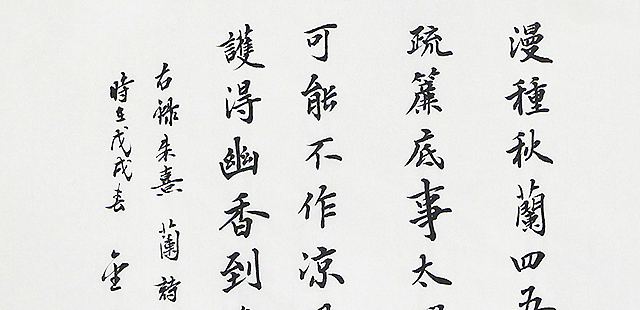 漫種秋蘭四五
疏簾底事太
可能不作涼
護得幽香到
右錄朱熹 蘭詩
時在戊戌春